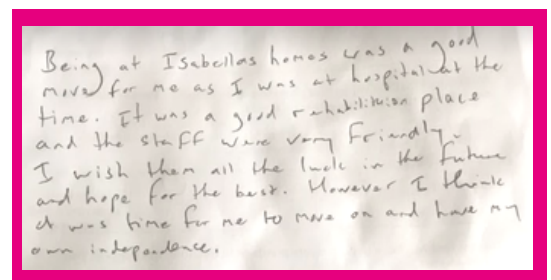 Being at Isabellas homes was a good
move for me as I was at hospital at the
time. It was a good rehabilitation place
and the staff were very friendly.
I wish them all the luck in the future
and hope for the best. However I think
it was time for me to move on and have my
own independence.